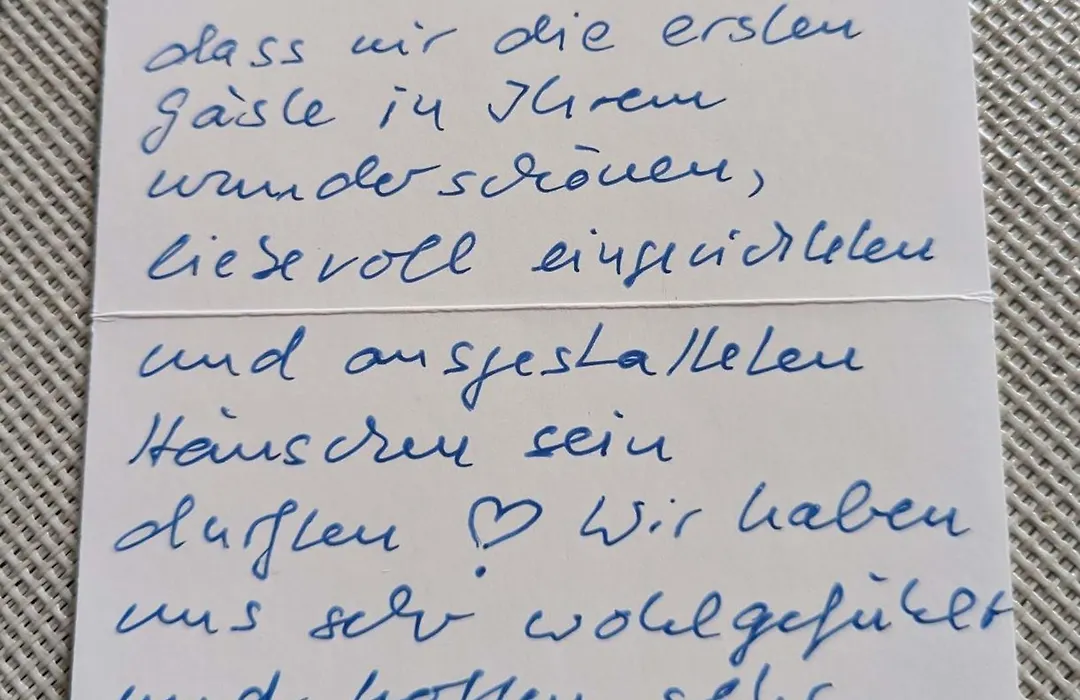 dass wir die ersten
Gäste in Ihrem
wunderschönen,
liebevoll eingerichteten
und ausgestatteten
Häuschen sein
durften ♡ Wir haben
uns sehr wohlgefühlt
und hoffen sehr